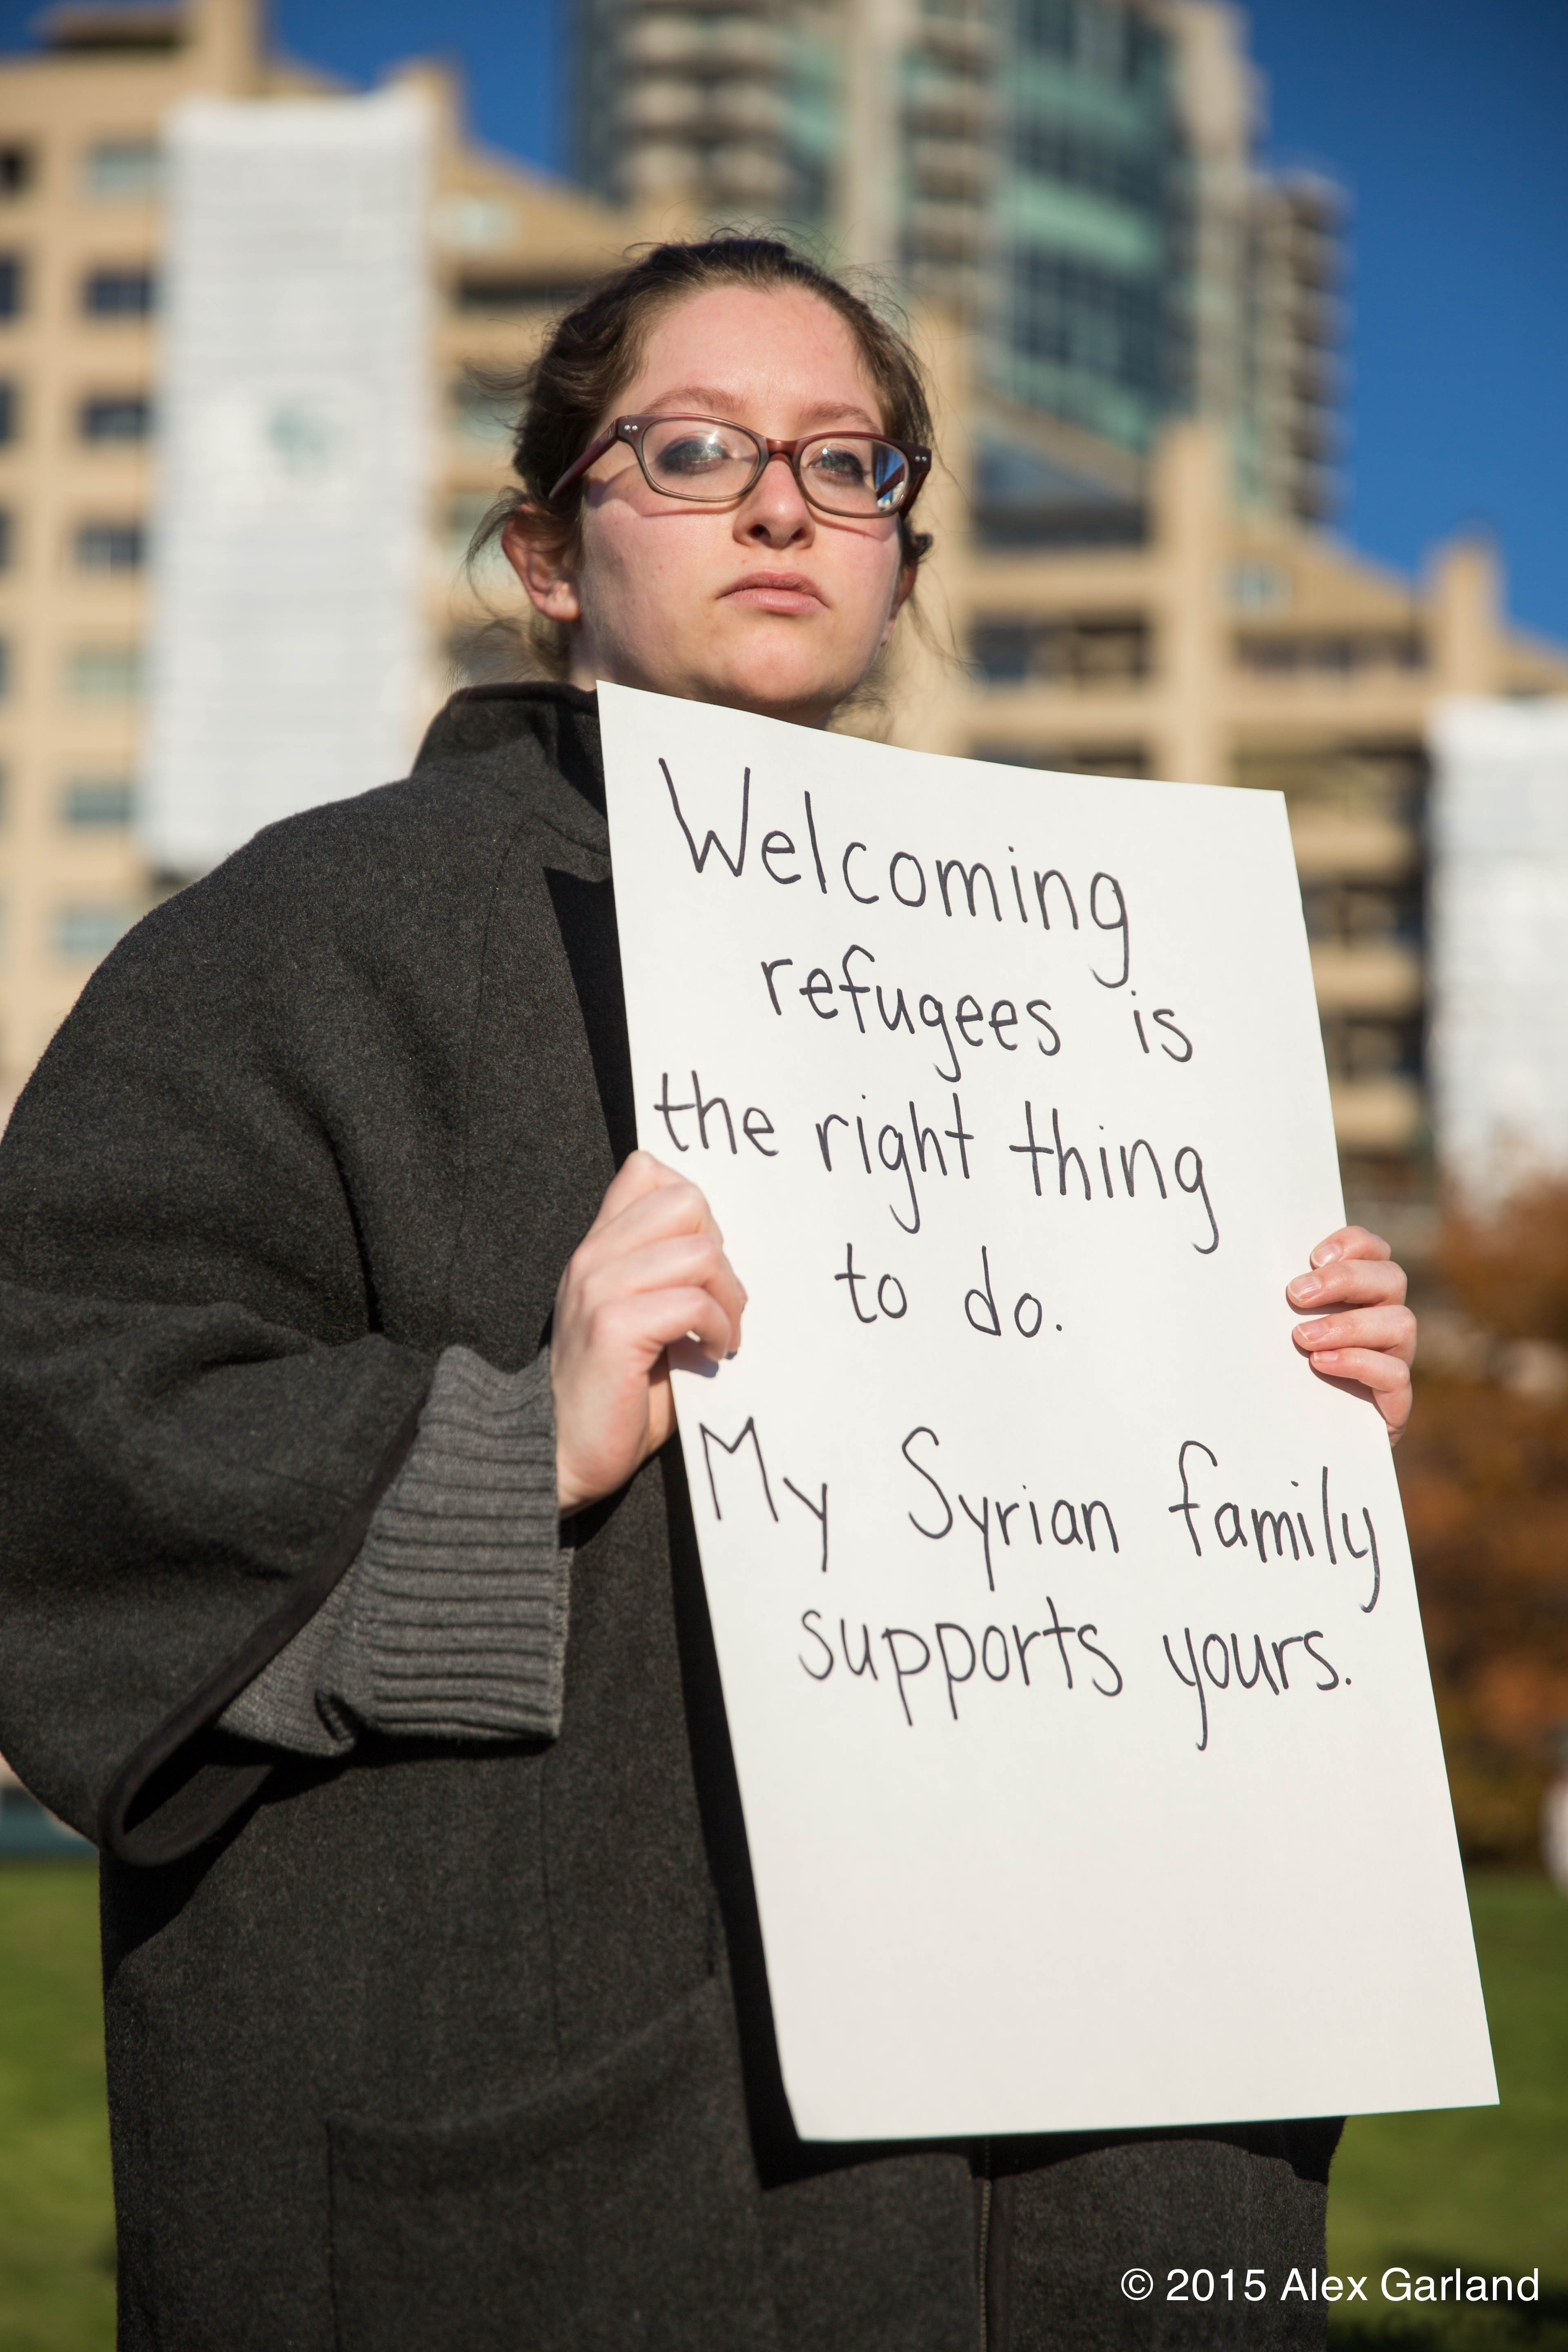 Welcoming
refugees is
the right thing
to do.
My Syrian family
supports yours.
© 2015 Alex Garland